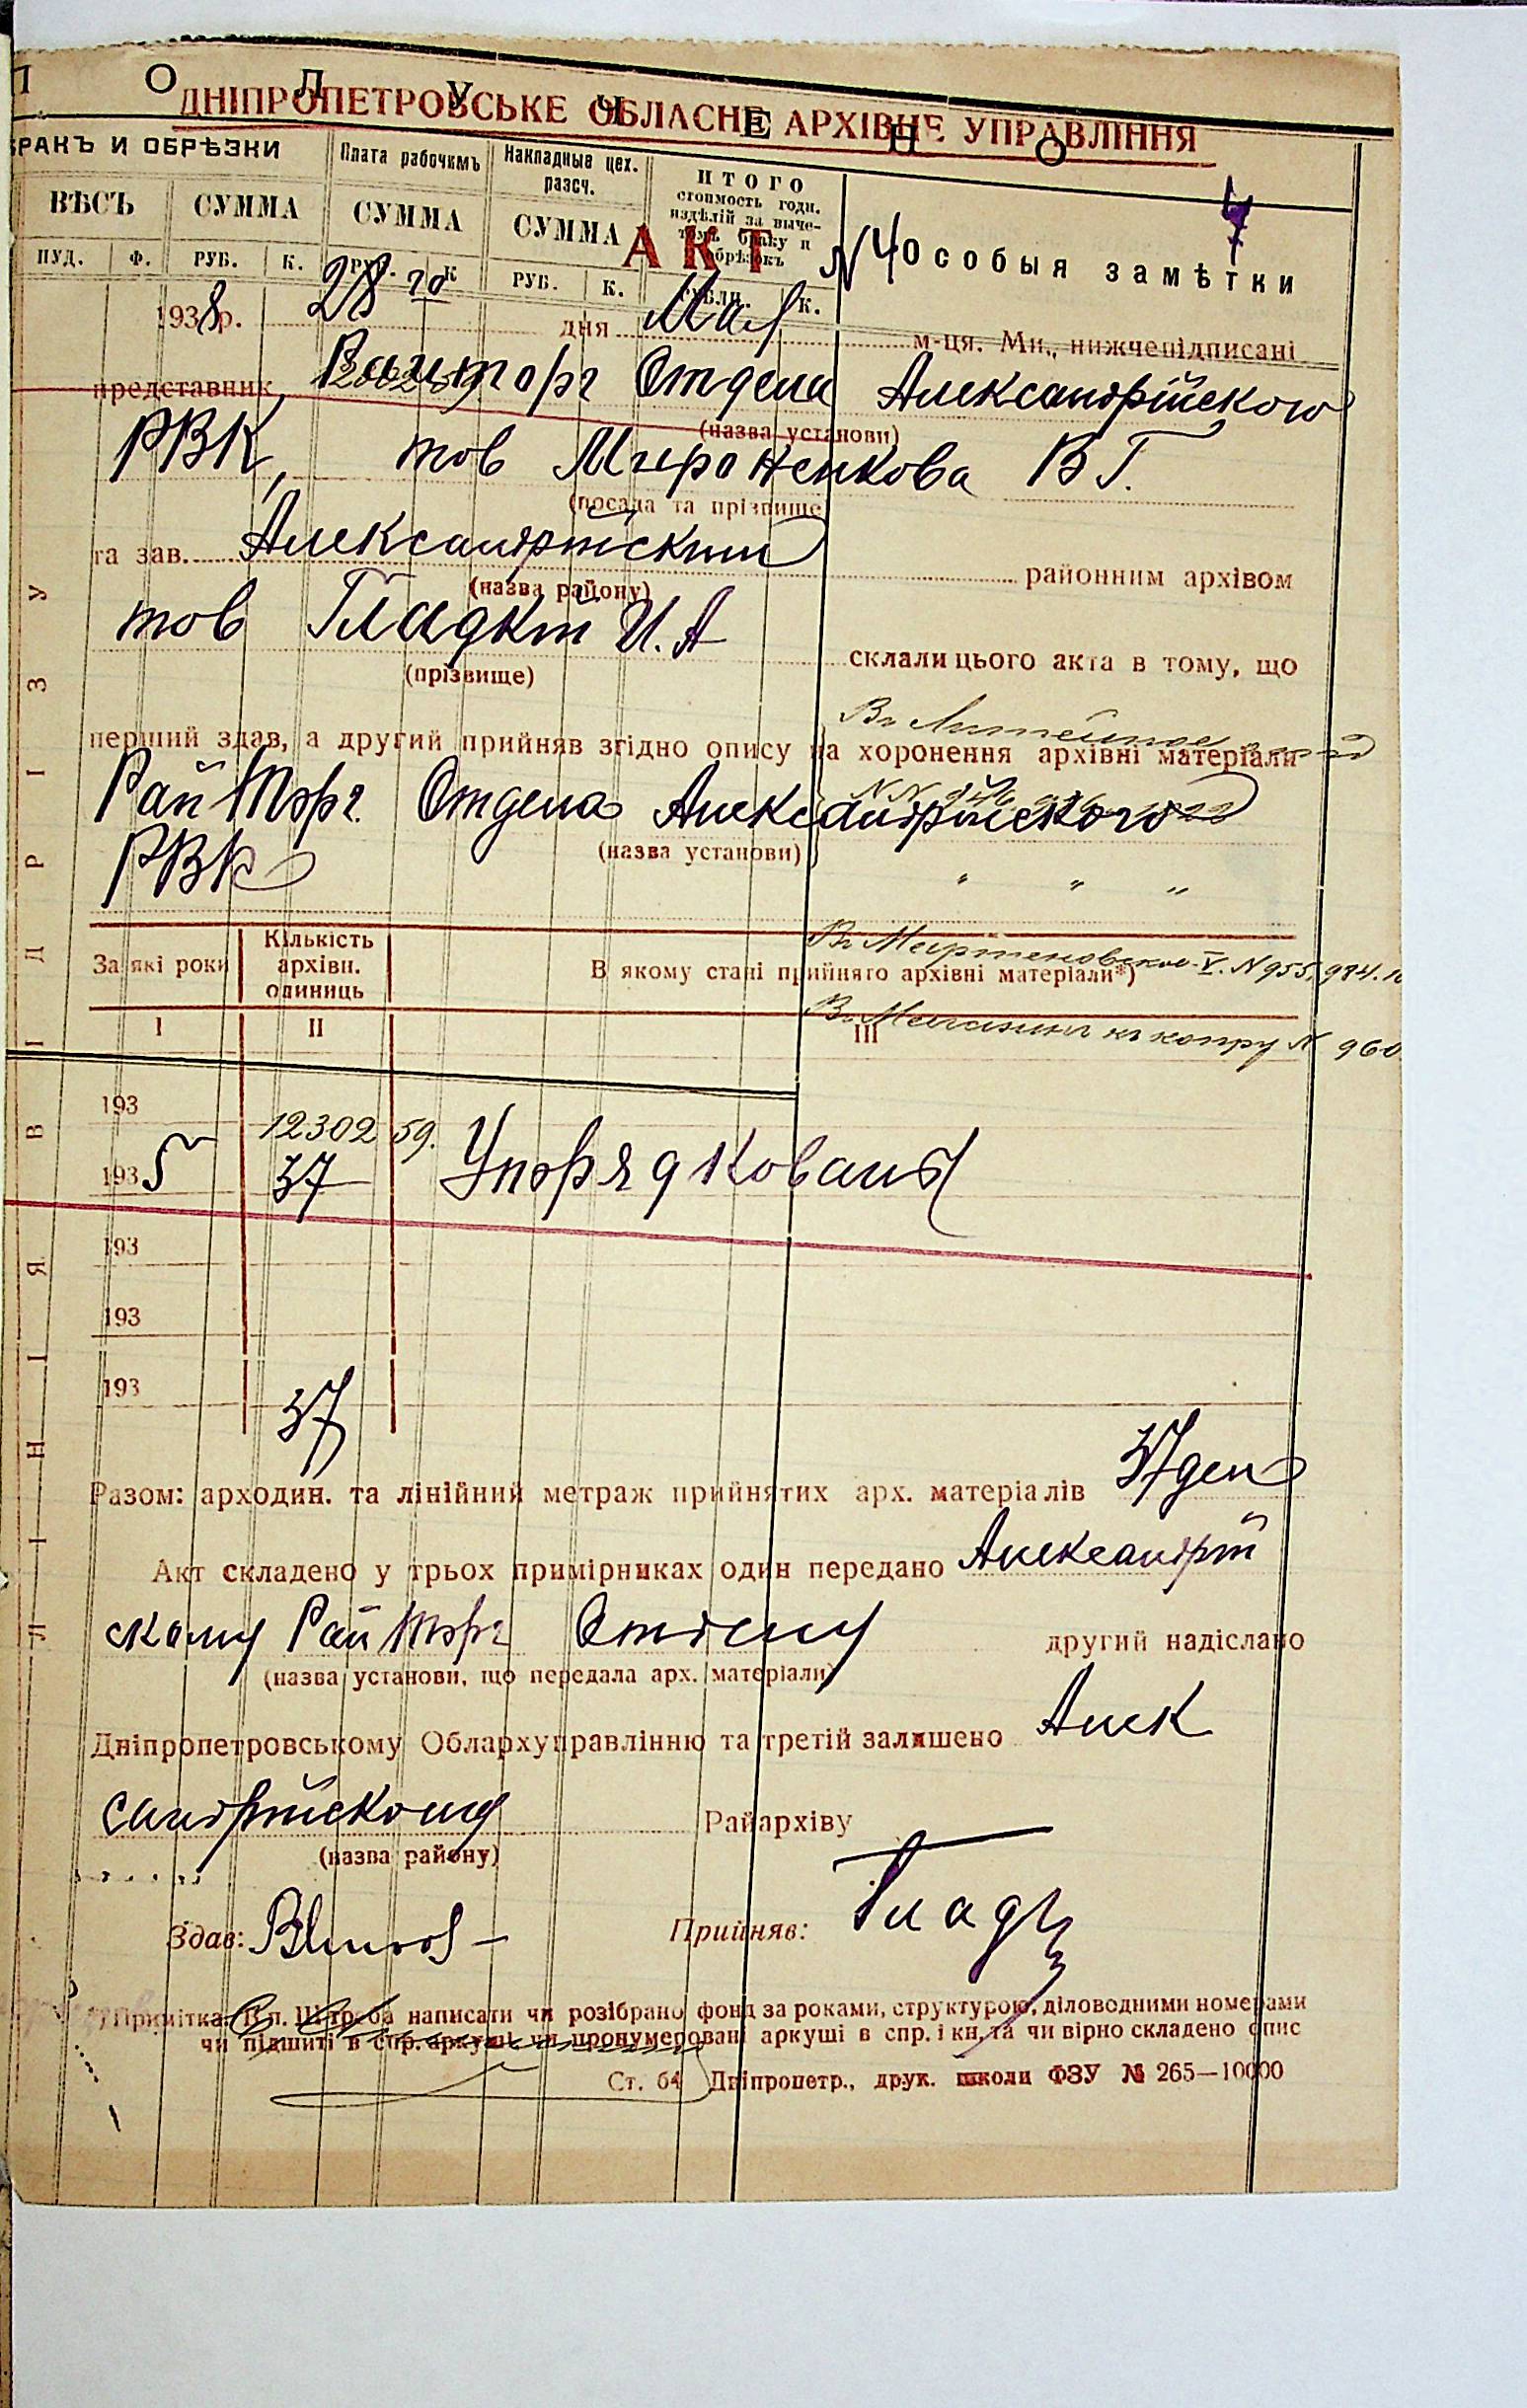 ПОЛУЧЕНО
ДНІПРОПЕТРОВСЬКЕ ОБЛАСНЕ АРХІВНЕ УПРАВЛІННЯ
БРАКЪ И ОБРѢЗКИ Плата рабочимъ Накладные цех. разсч. ИТОГО стоимость годн. издѣлій за выче-томъ браку и обрѣзокъ
ВѢСЪ СУММА СУММА СУММА
АКТ N 4 Особыя замѣтки
ПУД. Ф. РУБ. К. РУБ. К РУБ. К. РУБЛИ. К.
1938 р. 28 го дня Мая м-ця. Ми, нижчепідписані
представник Райторг Отдела Александрийского
(назва установи)
РВК, тов Мироненкова В Г.
(посада та прізвище)
та зав. Александрийским районним архівом
(назва району)
тов Гладкий И. А склали цього акта в тому, що
(прізвище)
Въ Литейное
перший здав, а другий прийняв згідно опису на хоронення архівні матеріали
N N
Рай Торг. Отдела Александрийского
РВК (назва установи)
" " "
Въ Мартеновское V. N 955, 984.
За які роки Кількість архівн. одиниць В якому стані прийнято архівні матеріали*)
Въ Магазинъ къ копру N 960
I II III
193
12302 59.
1935 37 Упорядкований
193
193
193
37
Разом: арходин. та лінійний метраж прийнятих арх. матеріалів 37 дел
Акт складено у трьох примірниках один передано Александрий
скому Рай Торг Отделу другий надіслано
(назва установи, що передала арх. матеріали)
Дніпропетровському Облархуправлінню та третій залишено Алек
сандрийскому Райархіву
(назва району)
Здав: Прийняв: Гладк
*) Примітка: В п. III треба написати чи розібрано фонд за роками, структурою, діловодними номерами
чи підшиті в спр. аркуші чи пронумеровані аркуші в спр. і кн. та чи вірно складено опис
Ст. 64 Дніпропетр., друк. школи ФЗУ № 265—10000
В І Д Р І З У
Л І Н І Я